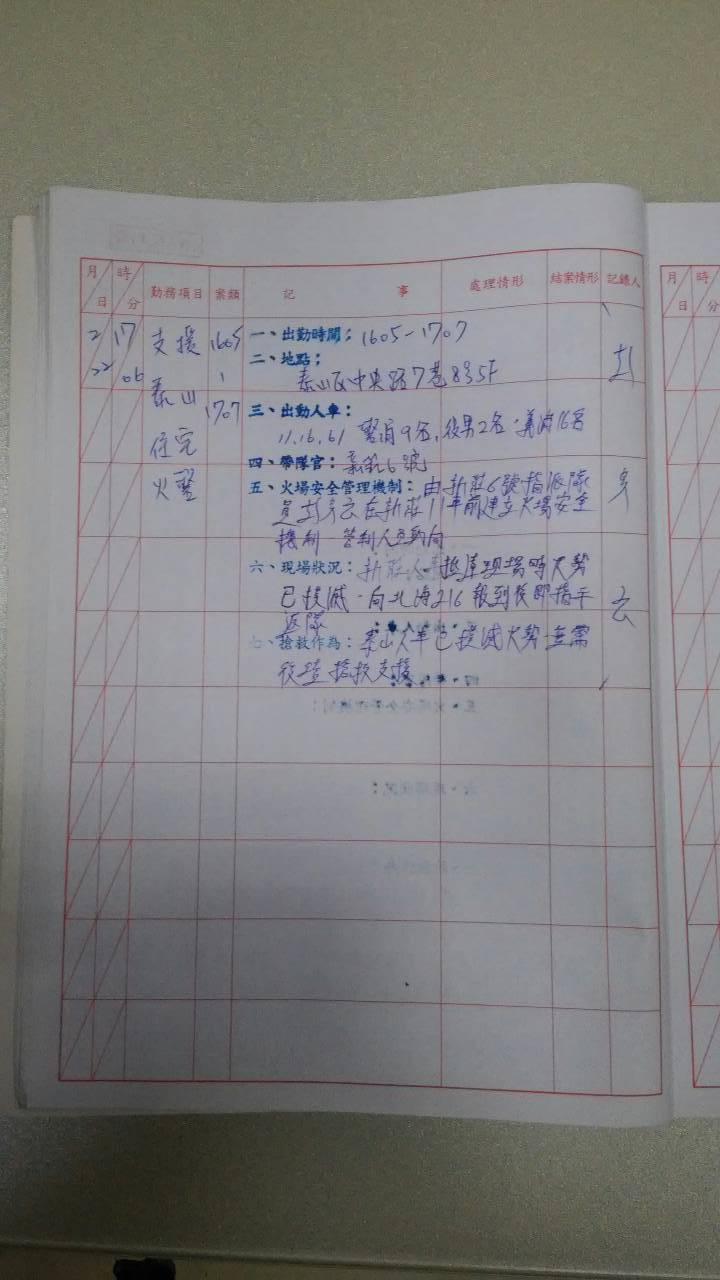 月 日 時 分 勤務項目 案類 記 事 處理情形 結案情形 記錄人
2 22 17 06
支援
泰山
住宅
火警
1605
1707
一、出勤時間：1605-1707
二、地點：
泰山區中央路7巷8號5F
三、出動人車：
11.16.61 警消9名,役男2名,義消16名
四、帶隊官：新莊6號
五、火場安全管理機制：由新莊6號指派隊
員彭 云在新莊11車前建立火場安全
機制 管制人員動向
六、現場狀況：新莊人車抵達現場時火勢
已撲滅，向北海216報到後即指示
返隊
七、搶救作為：泰山人車已撲滅火勢,無需
後續搶救支援
彭
云
月 日 時 分